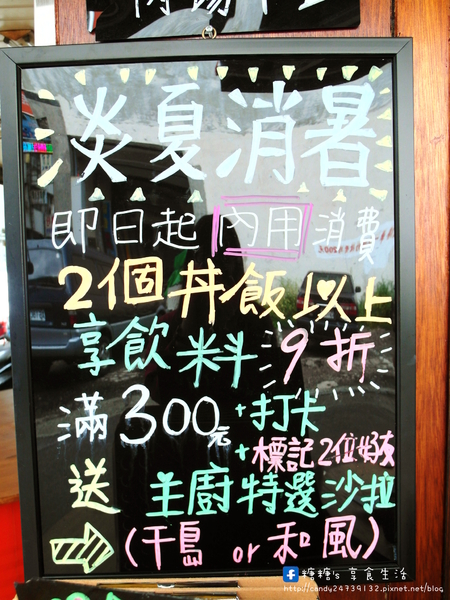 淡夏消暑
即日起 內用 消費
2個丼飯以上
享飲料 9折
滿300元 +打卡
+標記2位好友
送 主廚特選沙拉
(千島 or 和風)
糖糖's 享食生活
http://candy24739132.pixnet.net/blog